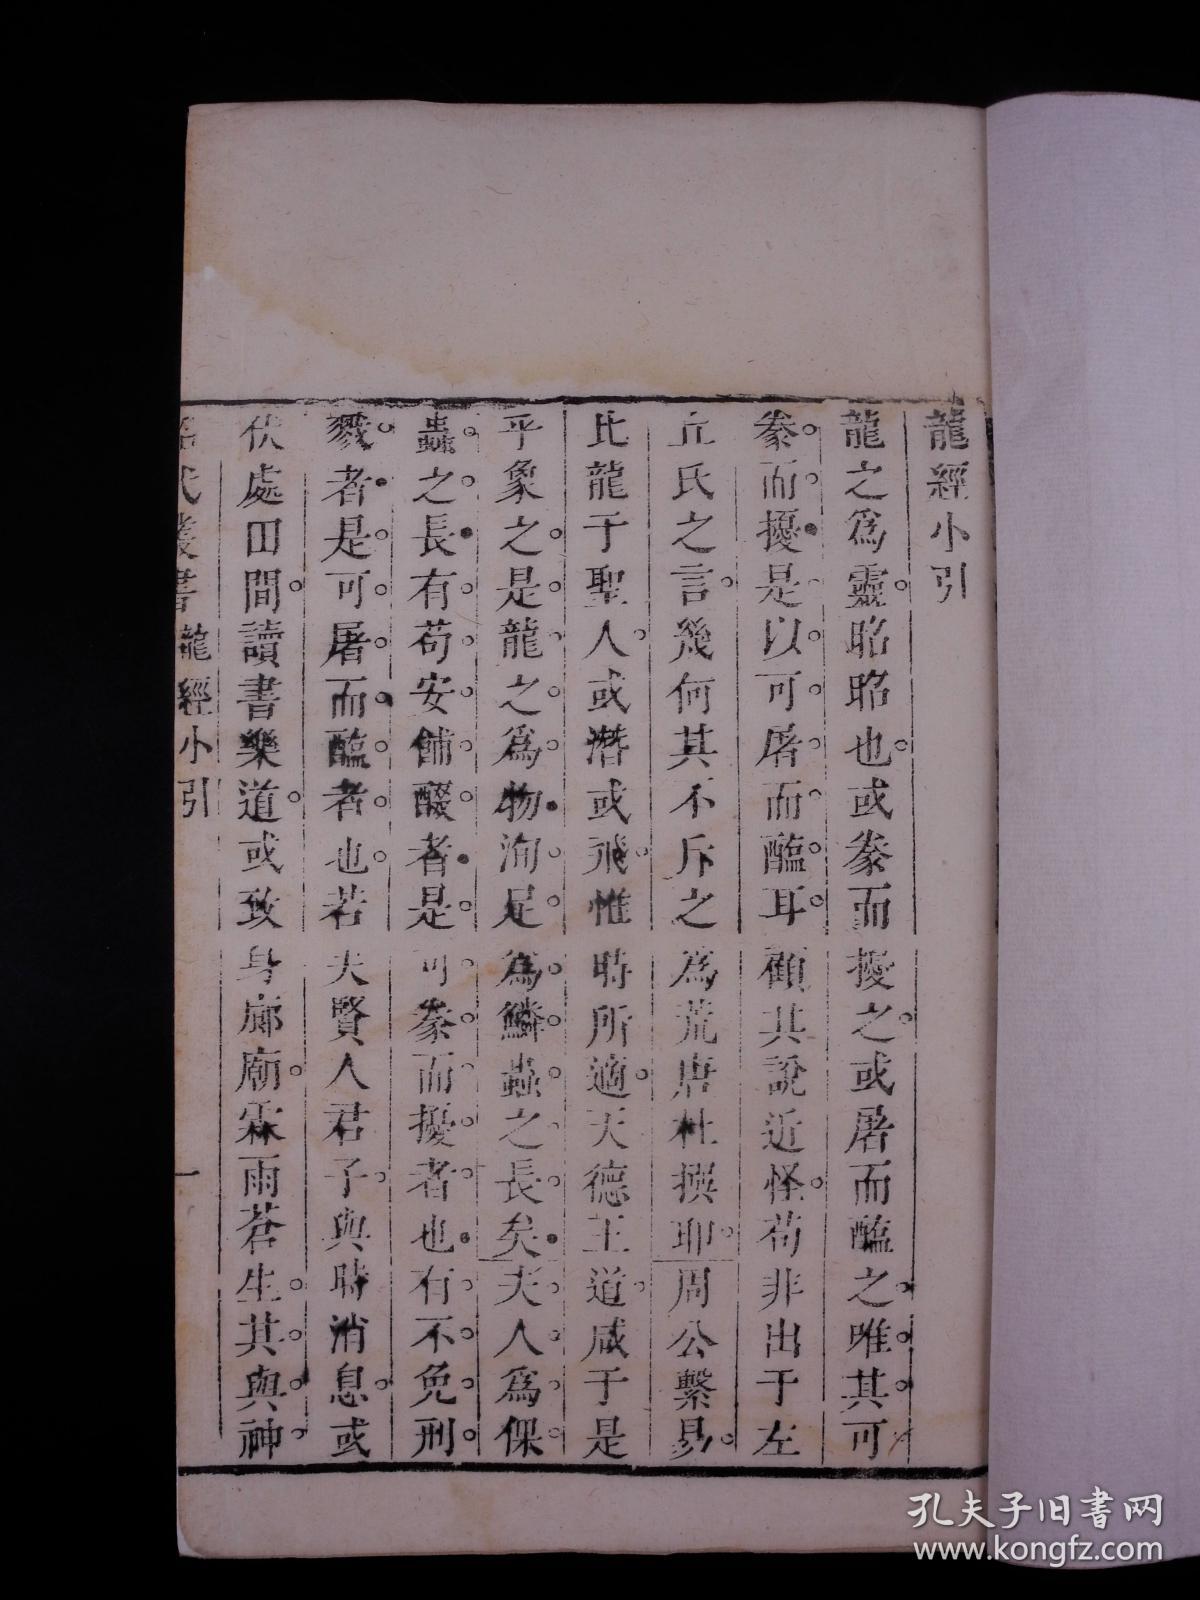 龍經小引
龍之爲靈昭昭也或豢而擾之或屠而醢之唯其可
豢而擾是以可屠而醢耳顧其說近怪苟非出于左
丘氏之言幾何其不斥之爲荒唐杜撰耶周公繫易
比龍于聖人或潛或飛惟時所適天德王道咸于是
乎象之是龍之爲物洵足爲鱗蟲之長矣夫人爲倮
蟲之長有苟安餔醊者是可豢而擾者也有不免刑
戮者是可屠而醢者也若夫賢人君子與時消息或
伏處田間讀書樂道或致身廊廟霖雨蒼生其與神
昭代叢書 龍經小引 一
孔夫子旧书网
www.kongfz.com